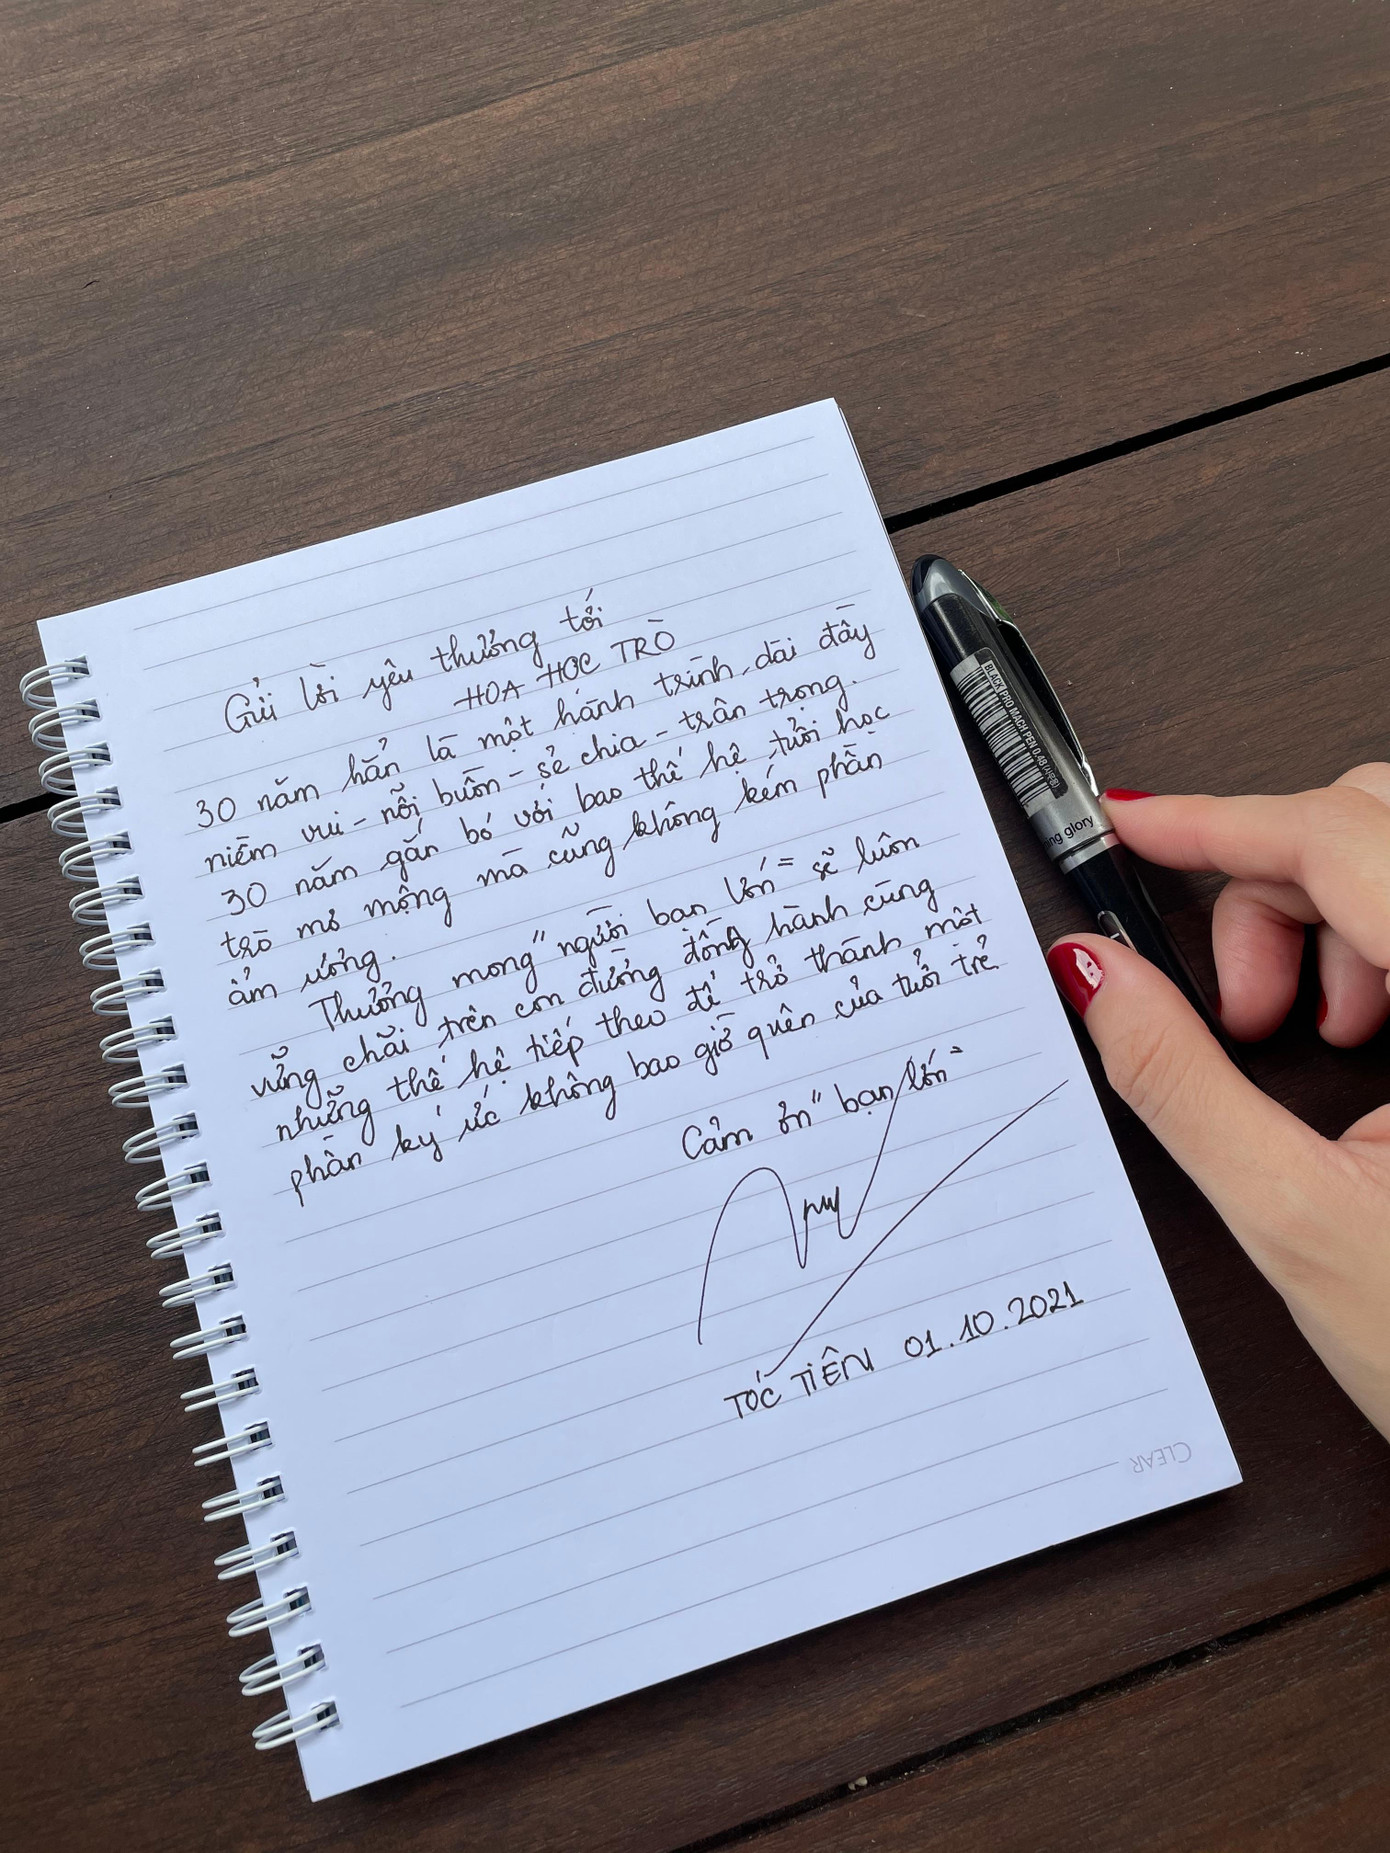 Gửi lời yêu thương tới
HOA HỌC TRÒ
30 năm hẳn là một hành trình dài đầy
niềm vui - nỗi buồn - sẻ chia - trân trọng.
30 năm gắn bó với bao thế hệ tuổi học
trò mơ mộng mà cũng không kém phần
ẩm ương.
Thương mong "người bạn lớn" sẽ luôn
vững chãi trên con đường đồng hành cùng
những thế hệ tiếp theo để trở thành một
phần ký ức không bao giờ quên của tuổi trẻ
Cảm ơn "bạn lớn"
TÓC TIÊN 01.10.2021
CLEAR
BLACK PRO MACH PEN 0.48
ing glory